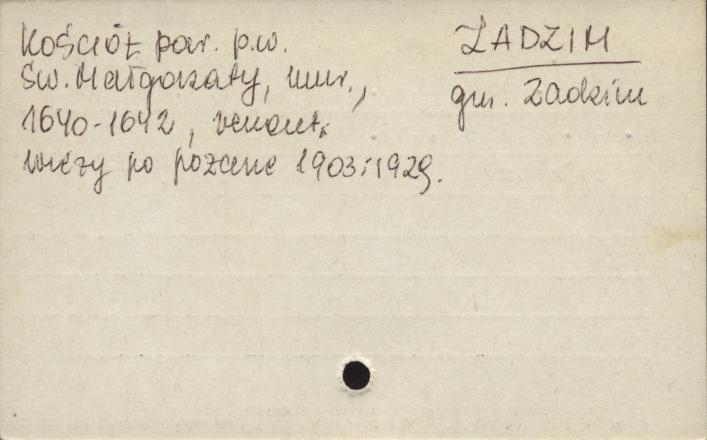 Kościół par. p.w.
Św. Małgorzaty, mur.,
1640-1642, remont.
wieży po pożarze 1903 i 1929.
ZADZIM
gm. Zadzim